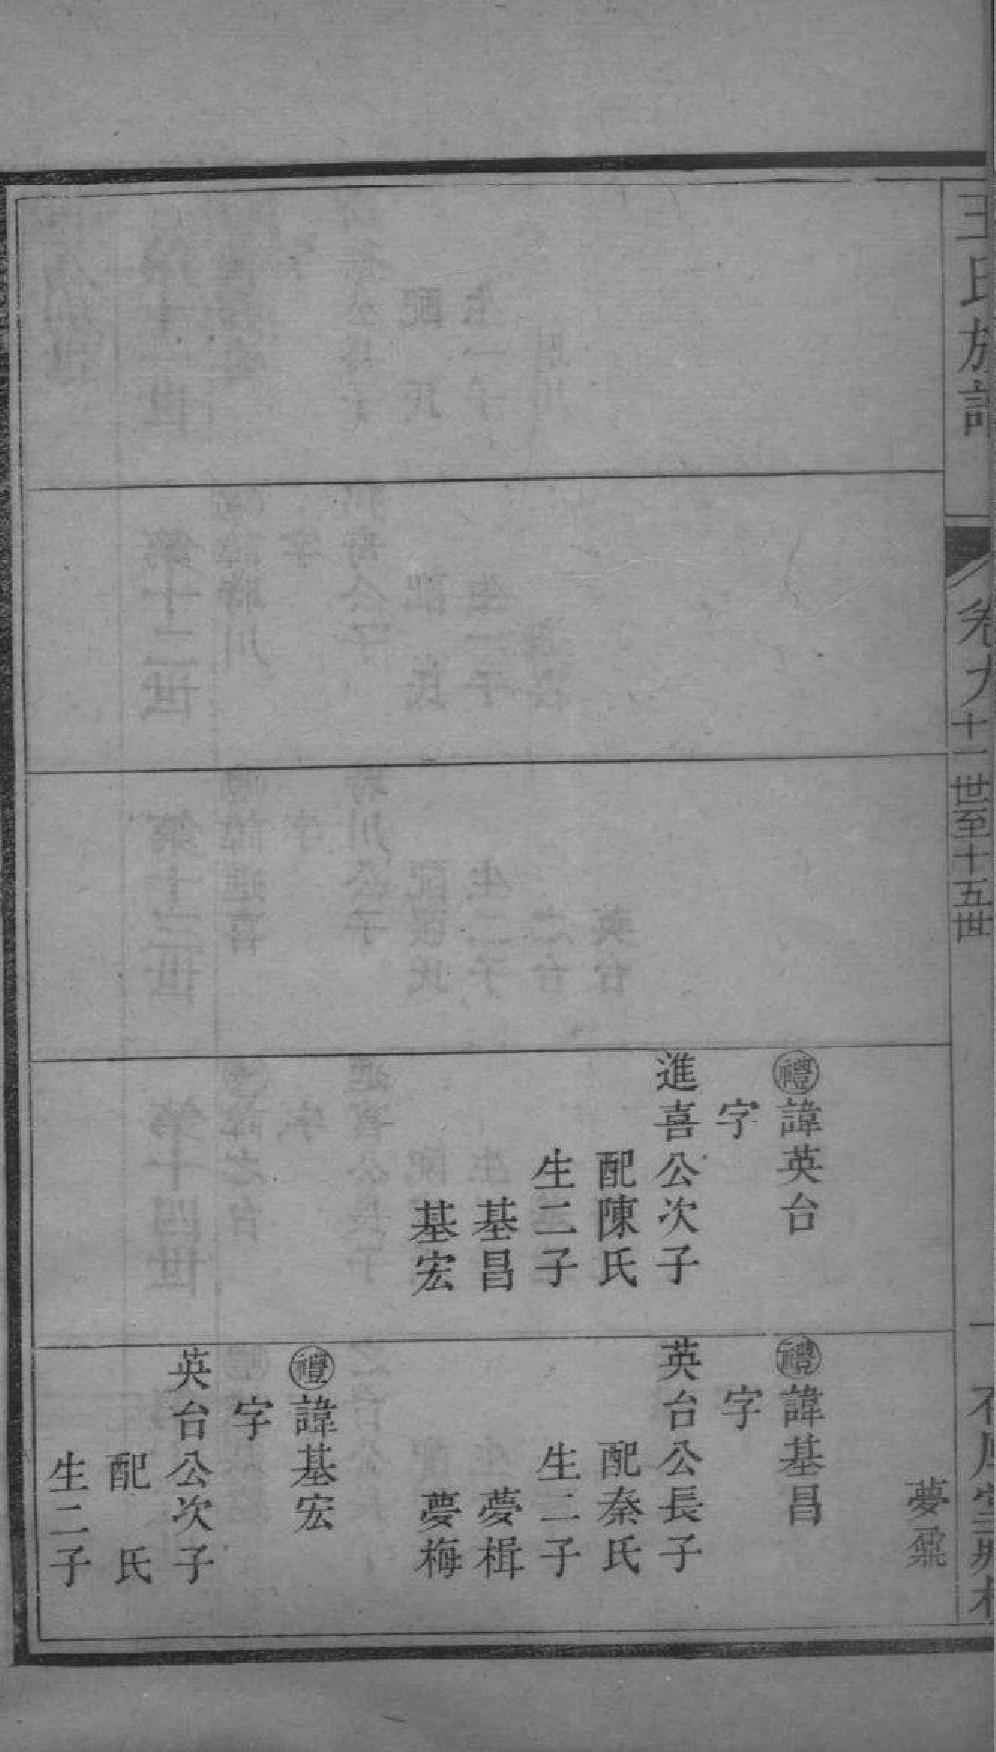 王氏族譜
卷九
十一世至十五世
禮諱英台
字
進喜公次子
配陳氏
生二子
基昌
基宏
夢
禮諱基昌
字
英台公長子
配秦氏
生二子
夢楫
夢梅
禮諱基宏
字
英台公次子
配　氏
生二子